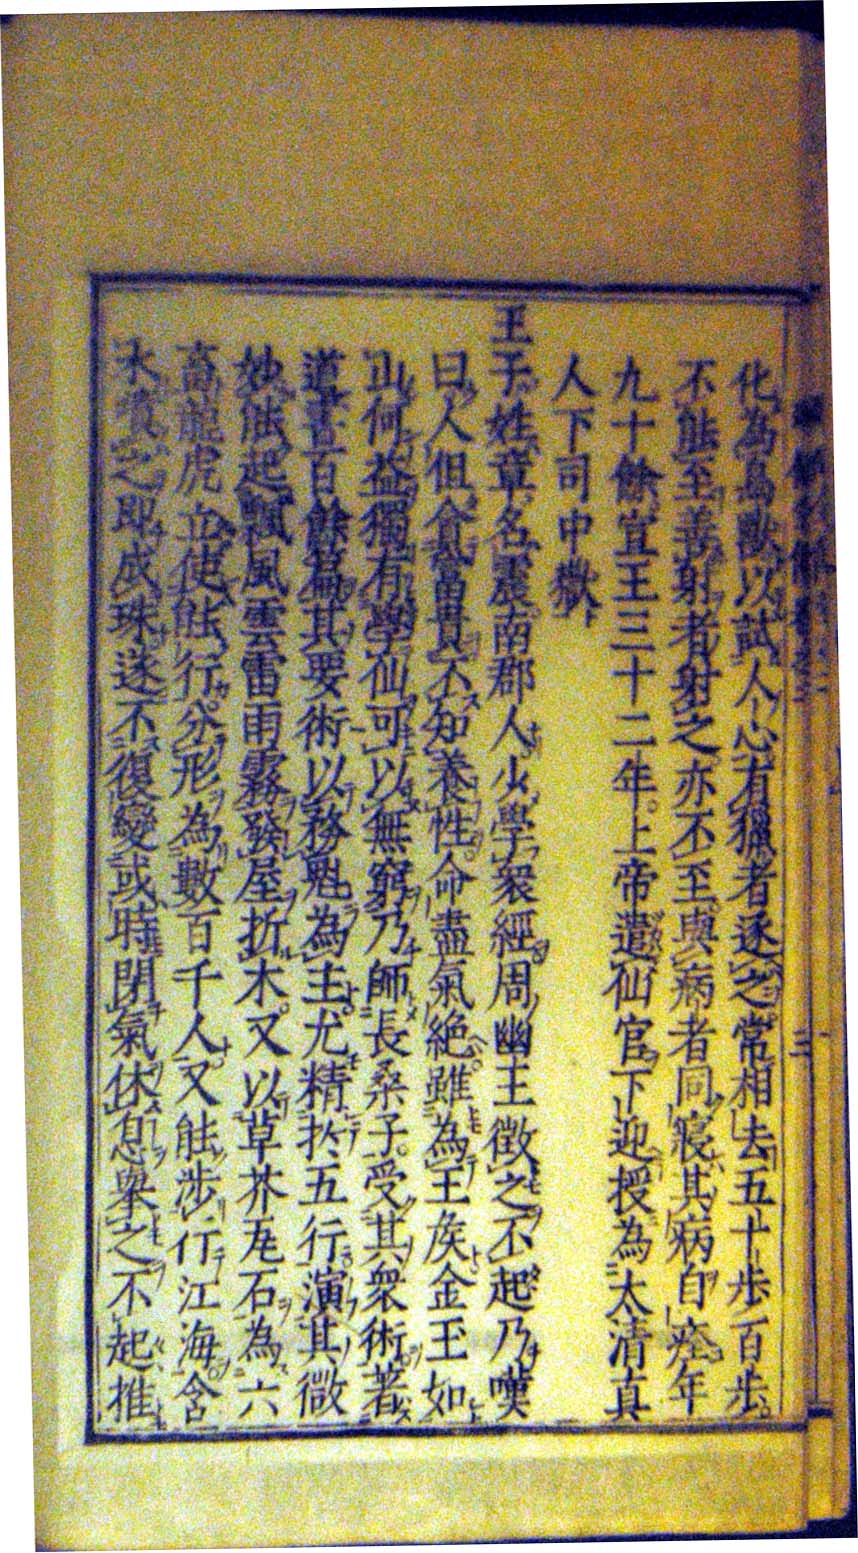 化為鳥獸以試人心有獵者逐之常相去五十歩百歩
不能至善射者射之亦不至與病者同寢其病自痊年
九十餘宣王三十二年上帝遣仙官下迎授為太清真
人下司中嶽
王子姓章名震南郡人少學衆經周幽王徴之不起乃嘆
曰人但貪富貴不知養性命盡氣絶雖為王矦金玉如
山何益獨有學仙可以無窮乃師長桑子受其衆術著
道書百餘篇其要術以務魁為主尤精扵五行演其微
妙能起飄風雲雷雨霧發屋折木又以草芥瓦石為六
畜龍虎立使能行分形為數百千人又能涉行江海含
水噴之即成珠遂不復變或時閉氣休息舉之不起推